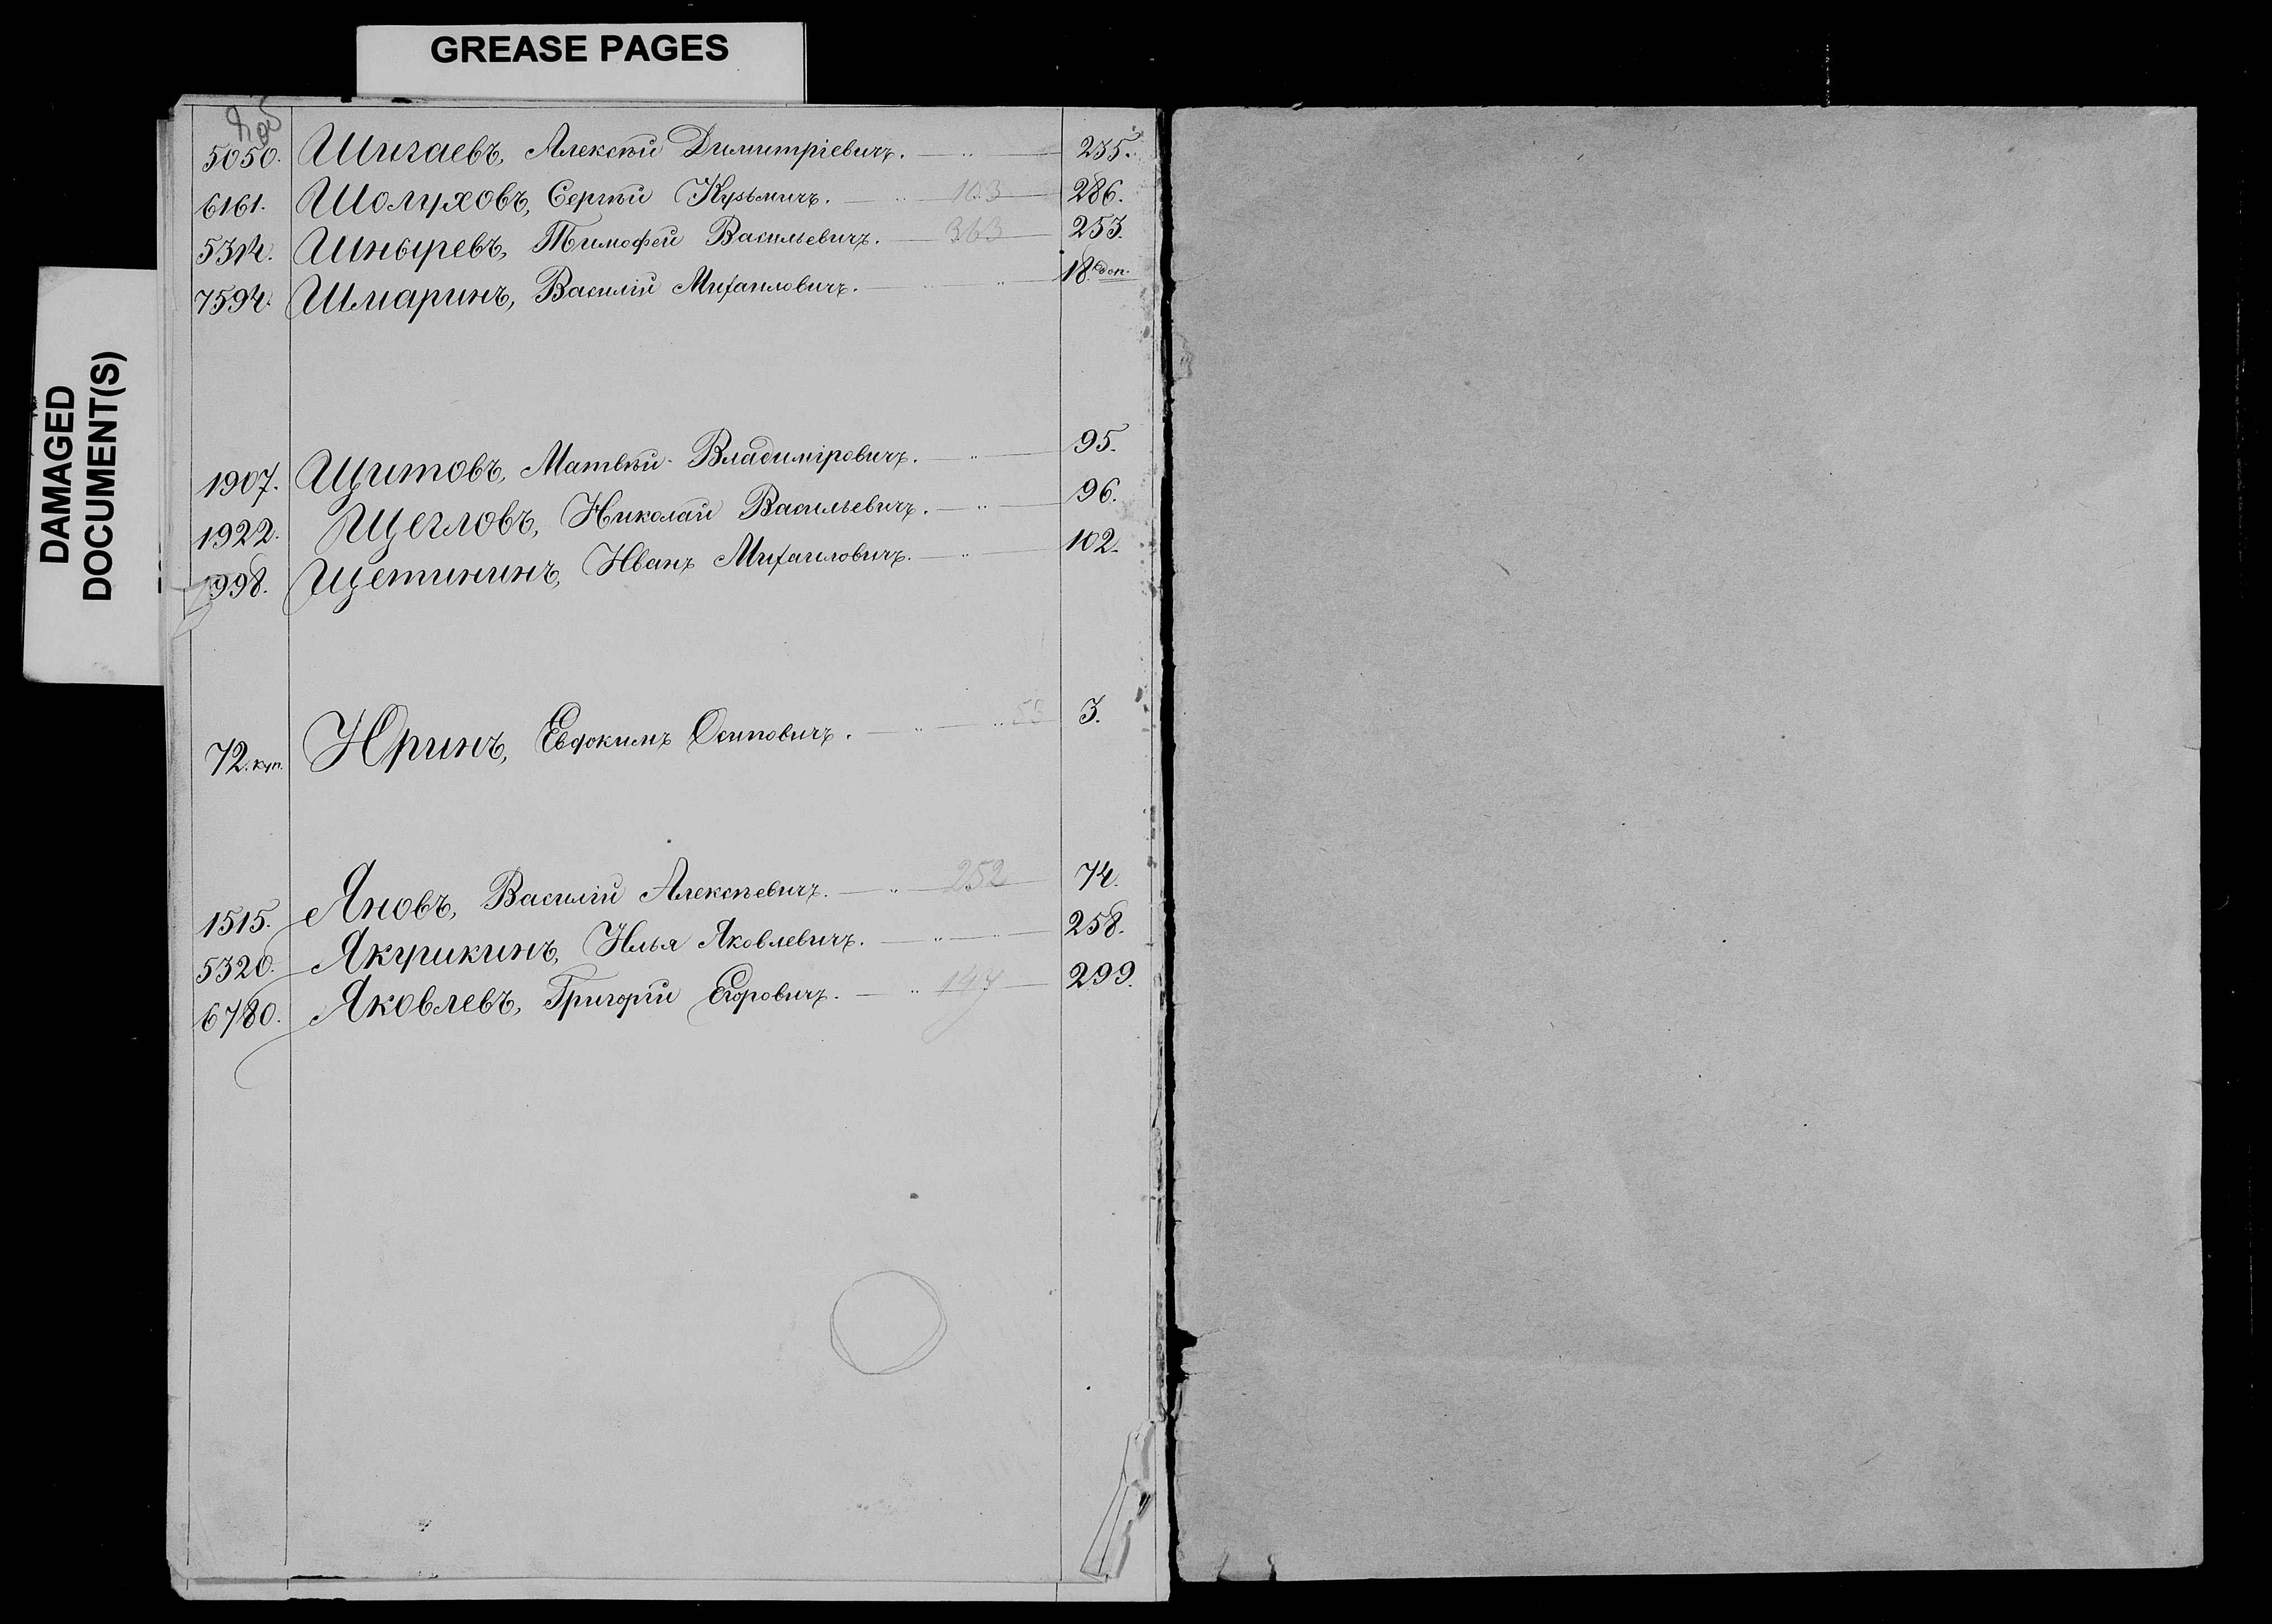 GREASE PAGES
DAMAGED
DOCUMENT(S)
5050. Шигаевъ, Алексѣй Димитріевичъ. 235.
6161. Шолуховъ, Сергѣй Кузьмичъ. 103 286.
5314. Шныревъ, Тимофей Васильевичъ. 363 253.
7594. Шмаринъ, Василій Михаиловичъ. 18 доп.
1907. Щитовъ, Матвѣй Владиміровичъ. 95.
1922. Щегловъ, Николай Васильевичъ. 96.
1998. Щетининъ, Иванъ Михаиловичъ. 102.
72. куп. Юринъ, Евдокимъ Осиповичъ. 53 3.
1515. Яновъ, Василій Алексѣевичъ. 252 74.
5320. Якушкинъ, Илья Яковлевичъ. 258.
6780. Яковлевъ, Григорій Егоровичъ. 144 299.